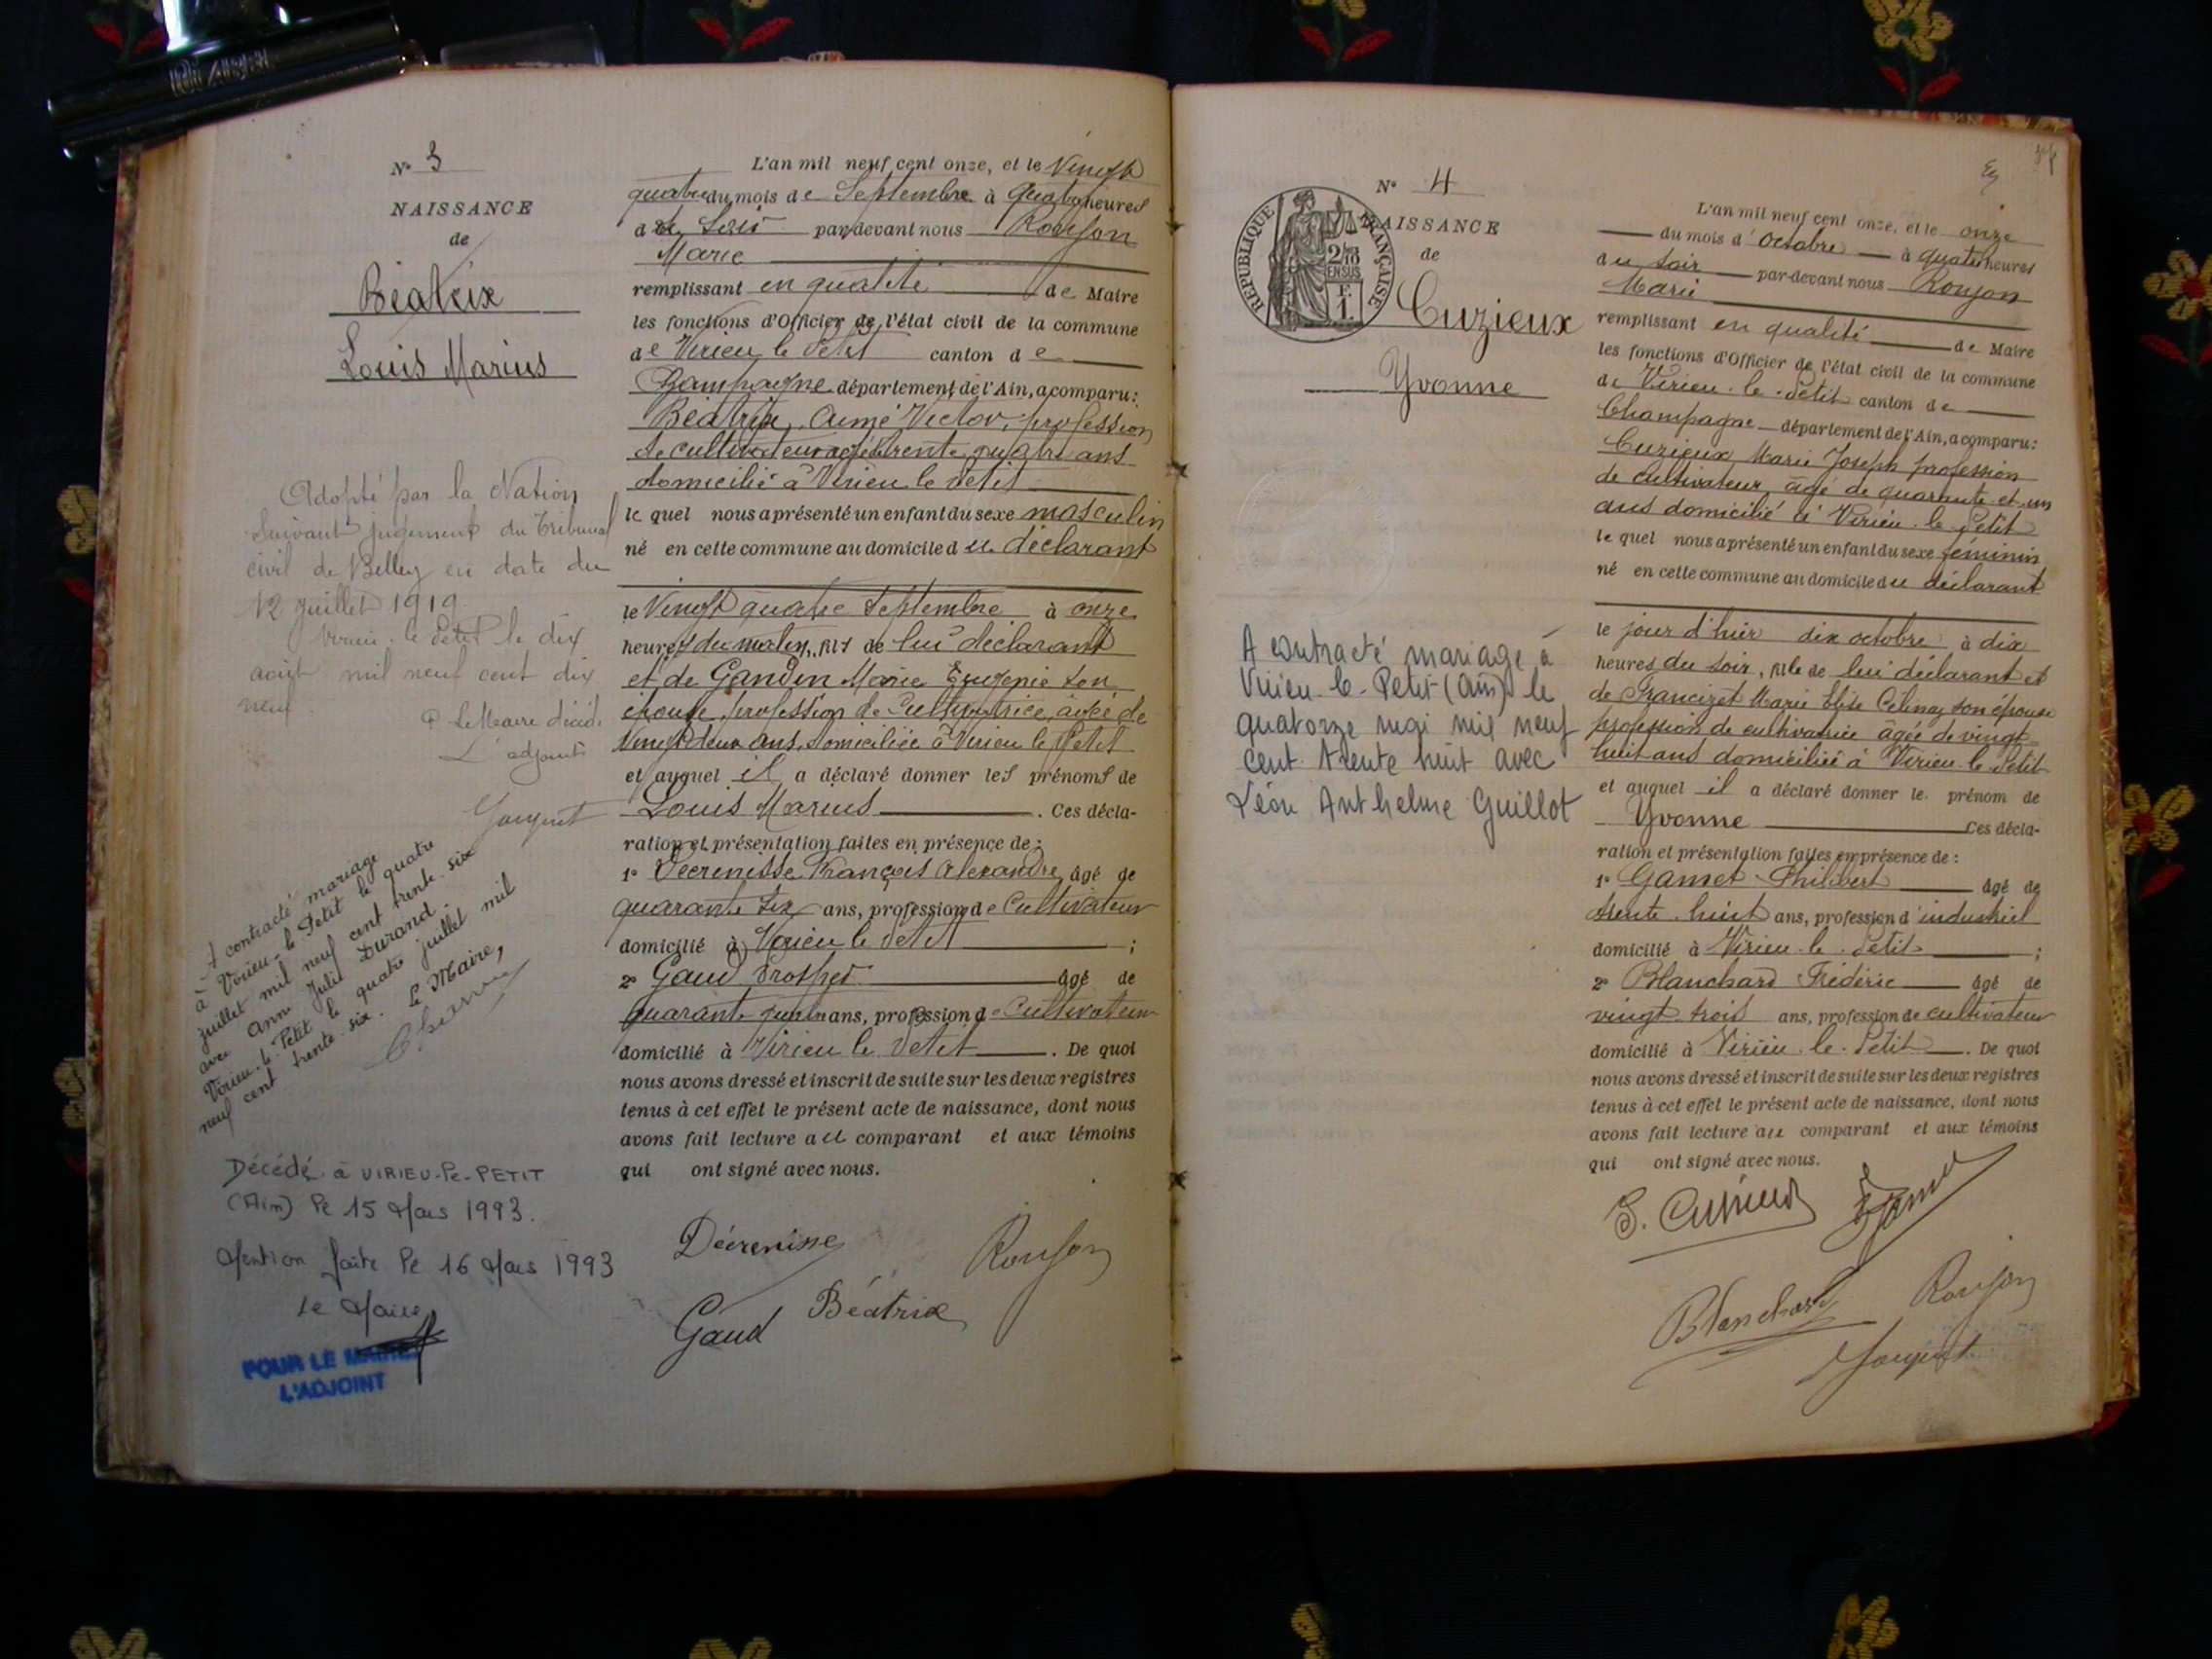 N° 3
NAISSANCE
de
Béatrix
Louis Marius
Adopté par la Nation
suivant jugement du Tribunal
civil de Belley en date du
12 juillet 1919
Virieu-le-Petit le dix
août mil neuf cent dix
neuf
P. le Maire décédé
L'adjoint
A contracté mariage
à Virieu-le-Petit le quatre
juillet mil neuf cent trente-six
avec Anne Julie Durand.
Virieu-le-Petit le quatre juillet mil
neuf cent trente-six. Le Maire,
Décédé à VIRIEU-le-PETIT
(Ain) le 15 Mars 1993.
Mention faite le 16 Mars 1993
le Maire
POUR LE MAIRE
L'ADJOINT
L'an mil neuf cent onze, et le Vingt
quatre du mois de Septembre à quatre heures
du Soir par-devant nous Roujon
Marie
remplissant en qualité de Maire
les fonctions d'Officier de l'état civil de la commune
de Virieu le Petit canton de
Champagne département de l'Ain, a comparu:
Béatrix, Aimé Victor, profession
de cultivateur agé de trente quatre ans
domicilié à Virieu le Petit
le quel nous a présenté un enfant du sexe masculin
né en cette commune au domicile du déclarant
le Vingt quatre Septembre à onze
heures du matin, fils de lui déclarant
et de Gandin Marie Eugenie son
épouse, profession de Cultivatrice, agée de
Vingt deux ans, domiciliée à Virieu le Petit
et auquel il a déclaré donner les prénoms de
Louis Marius . Ces décla-
ration et présentation faites en présence de :
1° Décrenisse François Alexandre, âgé de
quarante six ans, profession de Cultivateur
domicilié à Virieu le Petit ;
2° Gaud Prosper âgé de
quarante quatre ans, profession de Cultivateur
domicilié à Virieu le Petit . De quoi
nous avons dressé et inscrit de suite sur les deux registres
tenus à cet effet le présent acte de naissance, dont nous
avons fait lecture au comparant et aux témoins
qui ont signé avec nous.
Décrenisse
Roujon
Béatrix
Gaud
N° 4
NAISSANCE
de
REPUBLIQUE FRANÇAISE
2/10
EN SUS
F.
1.
Cuzieux
Yvonne
A contracté mariage à
Virieu-le-Petit (Ain) le
quatorze mai mil neuf
cent trente huit avec
Léon Anthelme Guillot
L'an mil neuf cent onze, et le onze
du mois d'octobre à quatre heures
du soir par-devant nous Roujon
Marie
remplissant en qualité de Maire
les fonctions d'Officier de l'état civil de la commune
de Virieu-le-Petit canton de
Champagne département de l'Ain, a comparu:
Cuzieux Marie Joseph profession
de cultivateur âgé de quarante et un
ans domicilié à Virieu-le-Petit
le quel nous a présenté un enfant du sexe féminin
né en cette commune au domicile du déclarant
le jour d'hier dix octobre à dix
heures du soir, fille de lui déclarant et
de Marie son épouse
profession de cultivatrice âgée de vingt
huit ans domiciliée à Virieu-le-Petit
et auquel il a déclaré donner le prénom de
Yvonne Ces décla-
ration et présentation faites en présence de :
1° Gamet Philibert âgé de
trente-huit ans, profession d'industriel
domicilié à Virieu-le-Petit ;
2° Blanchard Frédéric âgé de
vingt-trois ans, profession de cultivateur
domicilié à Virieu-le-Petit . De quoi
nous avons dressé et inscrit de suite sur les deux registres
tenus à cet effet le présent acte de naissance, dont nous
avons fait lecture au comparant et aux témoins
qui ont signé avec nous.
J. Cuzieux
Blanchard
Roujon